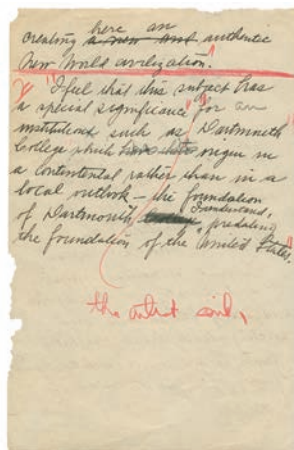 here an
creating a new and authentic
New World civilization."
"I feel that this subject has
a special significance" for an
institution such as Dartmouth
College which origin in
a continental rather than in a
local outlook — the foundation
of Dartmouth, I understand,
"predating
the foundation of the United States."
the artist said,